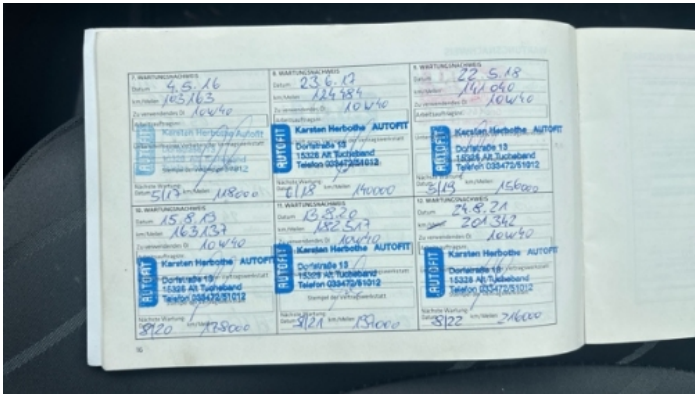 7. WARTUNGSNACHWEIS
Datum 4.5.16
km/Meilen 103163
Zu verwendendes Öl 10W40
Karsten Herbothe Autofit
AUTOFIT
15328 Alt Tucheband
Nächste Wartung
Datum 5/17 km/Meilen 118000
8. WARTUNGSNACHWEIS
Datum 23.6.17
km/Meilen 124484
Zu verwendendes Öl 10W40
Arbeitsauftragnr.
Karsten Herbothe AUTOFIT
AUTOFIT
Dorfstraße 13
15328 Alt Tucheband
Telefon 033472/51012
Nächste Wartung
Datum 6/18 km/Meilen 140000
9. WARTUNGSNACHWEIS
Datum 22.5.18
km/Meilen 141040
Zu verwendendes Öl 10W40
Arbeitsauftragnr.
Karsten Herbothe AUTOFIT
AUTOFIT
Dorfstraße 13
15328 Alt Tucheband
Telefon 033472/51012
Nächste Wartung
Datum 5/19 km/Meilen 156000
10. WARTUNGSNACHWEIS
Datum 15.8.19
km/Meilen 163137
Zu verwendendes Öl 10W40
Karsten Herbothe AUTOFIT
AUTOFIT
Dorfstraße 13
15328 Alt Tucheband
Telefon 033472/51012
Nächste Wartung
Datum 8/20 km/Meilen 178000
11. WARTUNGSNACHWEIS
Datum 13.8.20
km/Meilen 182517
Zu verwendendes Öl 10W40
Karsten Herbothe AUTOFIT
AUTOFIT
Dorfstraße 13
15328 Alt Tucheband
Telefon 033472/51012
Stempel der Vertragswerkstatt
Nächste Wartung
Datum 8/21 km/Meilen 197000
12. WARTUNGSNACHWEIS
Datum 24.8.21
km/Meilen 201342
Zu verwendendes Öl 10W40
Karsten Herbothe AUTOFIT
AUTOFIT
Dorfstraße 13
15328 Alt Tucheband
Telefon 033472/51012
Nächste Wartung
Datum 8/22 km/Meilen 216000
16